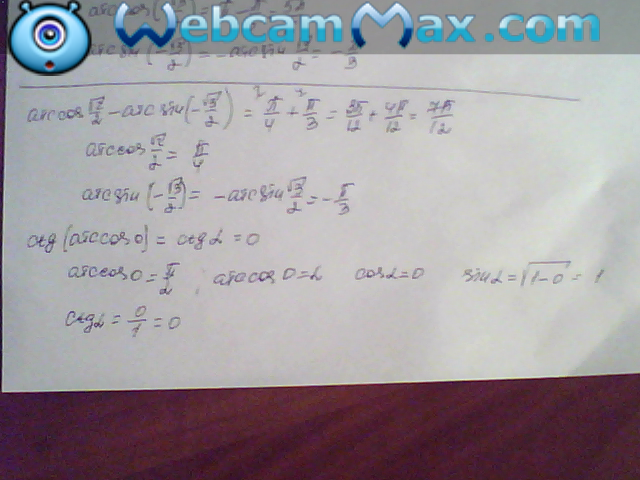 WebcamMax.com
arccos √2/2 - arcsin(-√3/2) = π/4 + π/3 = 3π/12 + 4π/12 = 7π/12
arccos √2/2 = π/4
arcsin(-√3/2) = -arcsin √3/2 = -π/3
ctg(arccos 0) = ctg α = 0
arccos 0 = π/2, arccos 0 = α cos α = 0 sin α = √1-0 = 1
ctg α = 0/1 = 0